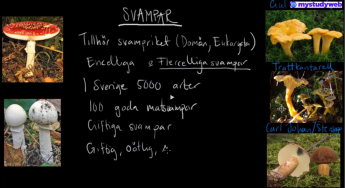 SVAMPAR
Tillhör svampriket (Domän, Eukaryota)
Encelliga & Flercelliga svampar
I Sverige 5000 arter
100 goda matsvampar
Giftiga svampar
Giftig, oätlig,
mystudyweb
Trattkantarell
Carl Johan/Stensopp